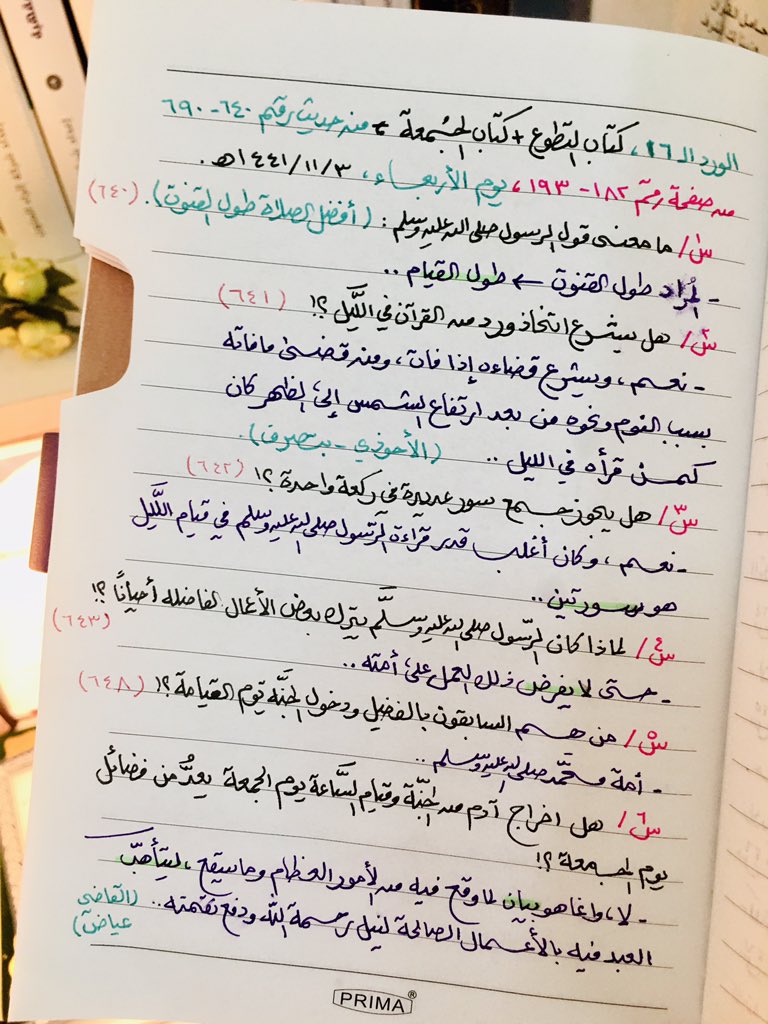 الورد الـ ١٦، كتاب التطوع + كتاب الجمعة ← من حديث رقم ٦٤٠ - ٦٩٠
من صفحة رقم ١٨٢ - ١٩٣، يوم الأربعاء، ١٤٤١/١١/٣هـ.
س١/ ما معنى قول الرسول صلى الله عليه وسلم: (أفضل الصلاة طول القنوت). (٦٤٠)
- المُراد طول القنوت ← طول القيام ..
س٢/ هل يشرع اتخاذ ورد من القرآن في اللَّيل؟! (٦٤١)
- نعم، ويشرع قضاءه إذا فات، ومن قضى مافاته
بسبب النوم ونحوه من بعد ارتفاع الشمس إلى الظهر كان
كمن قرأه في الليل .. (الأحوذي - بتصرف).
س٣/ هل يجوز جمع سور عديدة في ركعة واحدة؟! (٦٤٢)
- نعم، وكان أغلب قدر قراءة الرَّسول صلى الله عليه وسلم في قيام اللَّيل
هو سورتين ..
س٤/ لماذا كان الرَّسول صلى الله عليه وسلَّم يترك بعض الأعمال الفاضله أحياناً؟! (٦٤٣)
- حتى لا يفرض ذلك العمل على أمته ..
س٥/ من هم السابقون بالفضل ودخول الجنَّه يوم القيامة؟! (٦٤٨)
- أمة محمَّد صلى الله عليه وسلم ..
س٦/ هل اخراج آدم من الجنَّة وقيام السَّاعة يوم الجمعة يعدُّ من فضائل
يوم الجمعة؟!
- لا، وإنما هو بيان لما وقع فيه من الأمور العظام وما سيقع، ليتأهبّ
العبد فيه بالأعمال الصالحة لنيل رحمة الله ودفع نقمته .. (القاضي
عياض)
PRIMA®